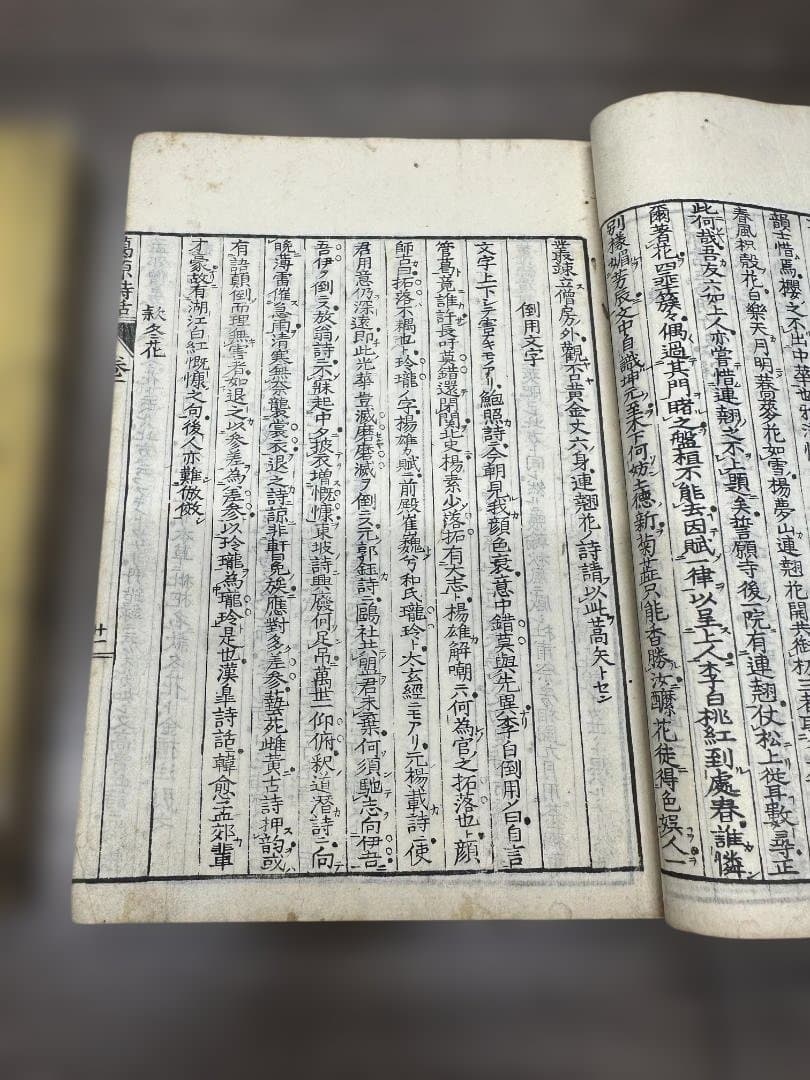 韻士惜焉櫻之不出中華也
春風枳殼花白樂天月明蕎麥花如雪楊夢山連翹花開
此何哉吾友六如上人亦嘗惜連翹之不上題矣誓願寺後一院有連翹仗松上從耳數尋正
爾著花四垂簇々偶過其門睹之盤桓不能去因賦一律以呈上人李白桃紅到處春誰憐
別樣媚芳辰文中自識坤元至木下何妨上德新菊蘂只能香勝汝釅花徒得色娯人一
叢疎立僧房外觀否黃金丈六身連翹花ノ詩請以此蒿矢トセン
倒用文字
文字上下シテ害ナキモノアリ鮑照詩今朝見我顏色衰意中錯莫與先異李白倒用メ曰自言
管葛竟誰許長吁莫錯還閉關北史楊素少落拓有大志楊雄解嘲ニ何為官之拓落也ト顏
師古拓落不耦也ト玲瓏ノ字楊雄カ賦ニ前殿崔巍兮和氏瓏玲ト太玄經ニモアリ元楊載詩ニ使
君用意仍深遠即此光華豈滅磨磨滅ヲ倒ス元郭鈺詩ニ鷗社共朋君未棄何須馳志向伊吾
吾伊ヲ倒ス放翁詩ニ不寐起中夕披衣增慨慷東坡詩興廢何足吊萬世一仰俯釈道潛詩ニ向
晩薄雷催急雨清寒無奈襲裳衣退之詩諒非軒冕族應對多差參藝苑雌黃古詩押韻或
有語顛倒而理無害者如退之以參差為差參以玲瓏為瓏玲是也漢皐詩話韓愈孟郊輩
才豪故有湖江白紅慨慷之句後人亦難倣傚
款冬花
葛原詩話
十一